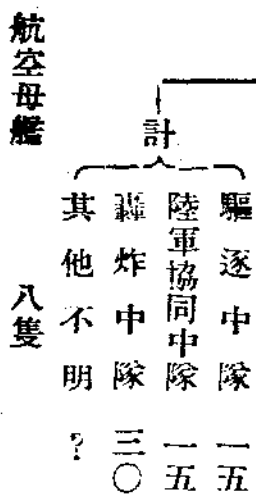 計
驅逐中隊 一五
陸軍協同中隊 一五
轟炸中隊 三〇
其他不明 ?
航空母艦 八隻